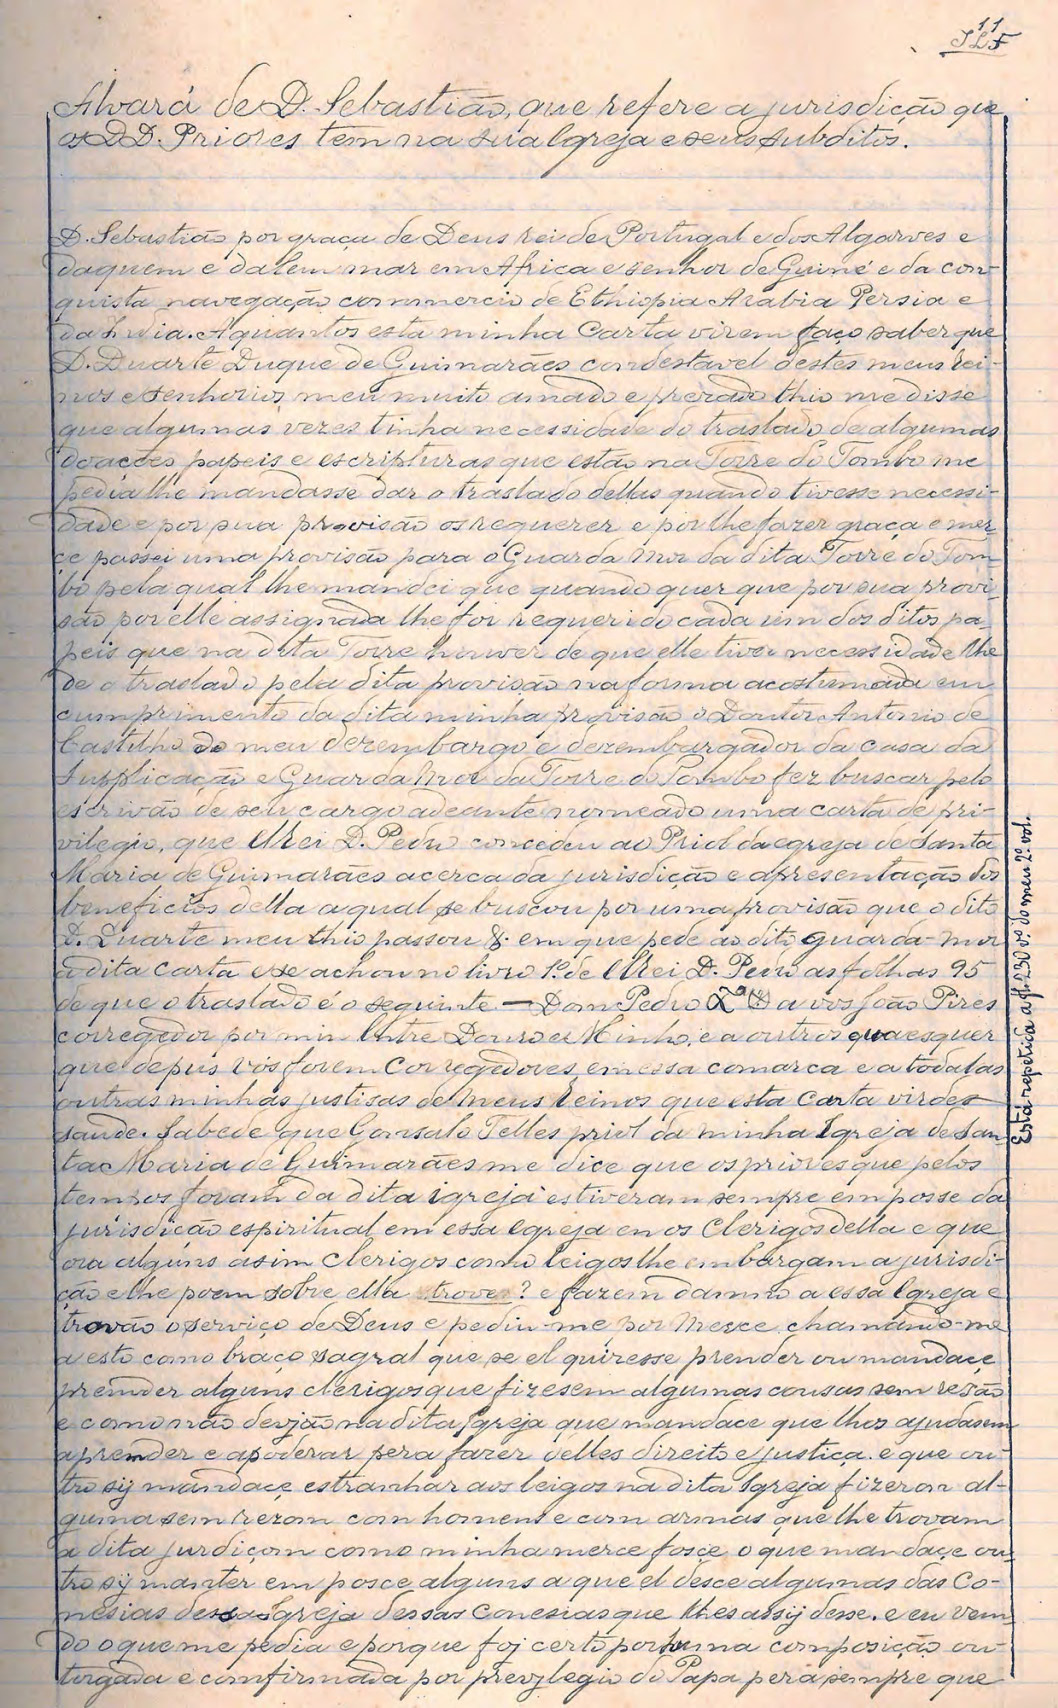 11
Alvará de D. Sebastião, que refere a jurisdição que
os DD. Priores têm na sua Igreja e seus subditos.
D. Sebastião por graça de Deus rei de Portugal e dos Algarves e
daquem e dalem mar em Africa e senhor de Guiné e da con-
quista navegação commercio de Ethiopia Arabia Persia e
da India. A quantos esta minha Carta virem faço saber que
D. Duarte Duque de Guimarães condestavel destes meus rei-
nos e senhorios, meu muito amado e prezado thio me disse
que algumas vezes tinha necessidade do traslado de algumas
doações papeis e escripturas que estão na Torre do Tombo me
pedia lhe mandasse dar o traslado dellas quando tivesse necessi-
dade e por sua provisão os requerer e por lhe fazer graça e mer
ce passei uma provisão para o Guarda Mor da dita Torre do Tom
bo pela qual lhe mandei que quando quer que por sua provi-
são por elle assignada lhe foi requerido cada um dos ditos pa-
peis que na dita Torre houver de que elle tiver necessidade lhe
de o traslado pela dita provisão na forma acostumada em
cumprimento da dita minha provisão o Doutor Antonio de
Castilho do meu dezembargo e dezembargador da casa da
Supplicação e Guarda Mor da Torre do Tombo fez buscar pelo
escrivão de seu cargo adeante nomeado uma carta de pri-
vilegio, que ElRei D. Pedro concedeu ao Priol da egreja de Santa
Maria de Guimarães acerca da jurisdição e apresentação dos
beneficios della a qual se buscou por uma provisão que o dito
D. Duarte meu thio passou &. em que pede ao dito guarda-mor
a dita carta e se achou no livro 1º de ElRei D. Pedro as folhas 95
de que o traslado é o seguinte — Dom Pedro a vós João Pires
corregedor por mim Entre Douro e Minho, e a outros quaesquer
que depus vós forem Corregedores em essa comarca e a todalas
outras minhas justisas de meus Reinos que esta carta virdes
saude. Sabede que Gonsalo Telles priol da minha Igreja de San-
ta Maria de Guimarães me dice que os priores que pelos
tempos foram da dita igreja estiveram sempre em posse da
jurisdição espiritual em essa egreja en os Clerigos della e que
ora alguns asim clerigos como leigos lhe embargam a jurisdi-
ção e lhe poem sobre ella trove? e fazem damno a essa Igreja e
trovão o serviço de Deus e pediu-me por merce, chamando-me
a esto como braço sagral que se el quiresse prender ou mandace
premder alguns clerigos que fizesem algumas cousas sem resão
e como não devjão na dita Igreja que mandace que lhos ajudasem
a premder e apoderar pera fazer delles direito e justiça. e que ou-
tro sij mandace estranhar aos leigos na dita Igreja fizeron al-
guma sem rezom com homens e com armas que lhe trovam
a dita jurdiçom como minha merce fosçe o que mandaçe ou-
tro sij manter em posce alguns a que el desce algumas das Co-
nesias dessa Igreja dessas Conesias que lhes assij desse. e eu vem
do o que me pedia e porque foj certo por huma composição ou-
torgada e comfirmada por prevjlegio do Papa pera sempre que
Está repetida a fl. 230 vº. do meu 2º vol.